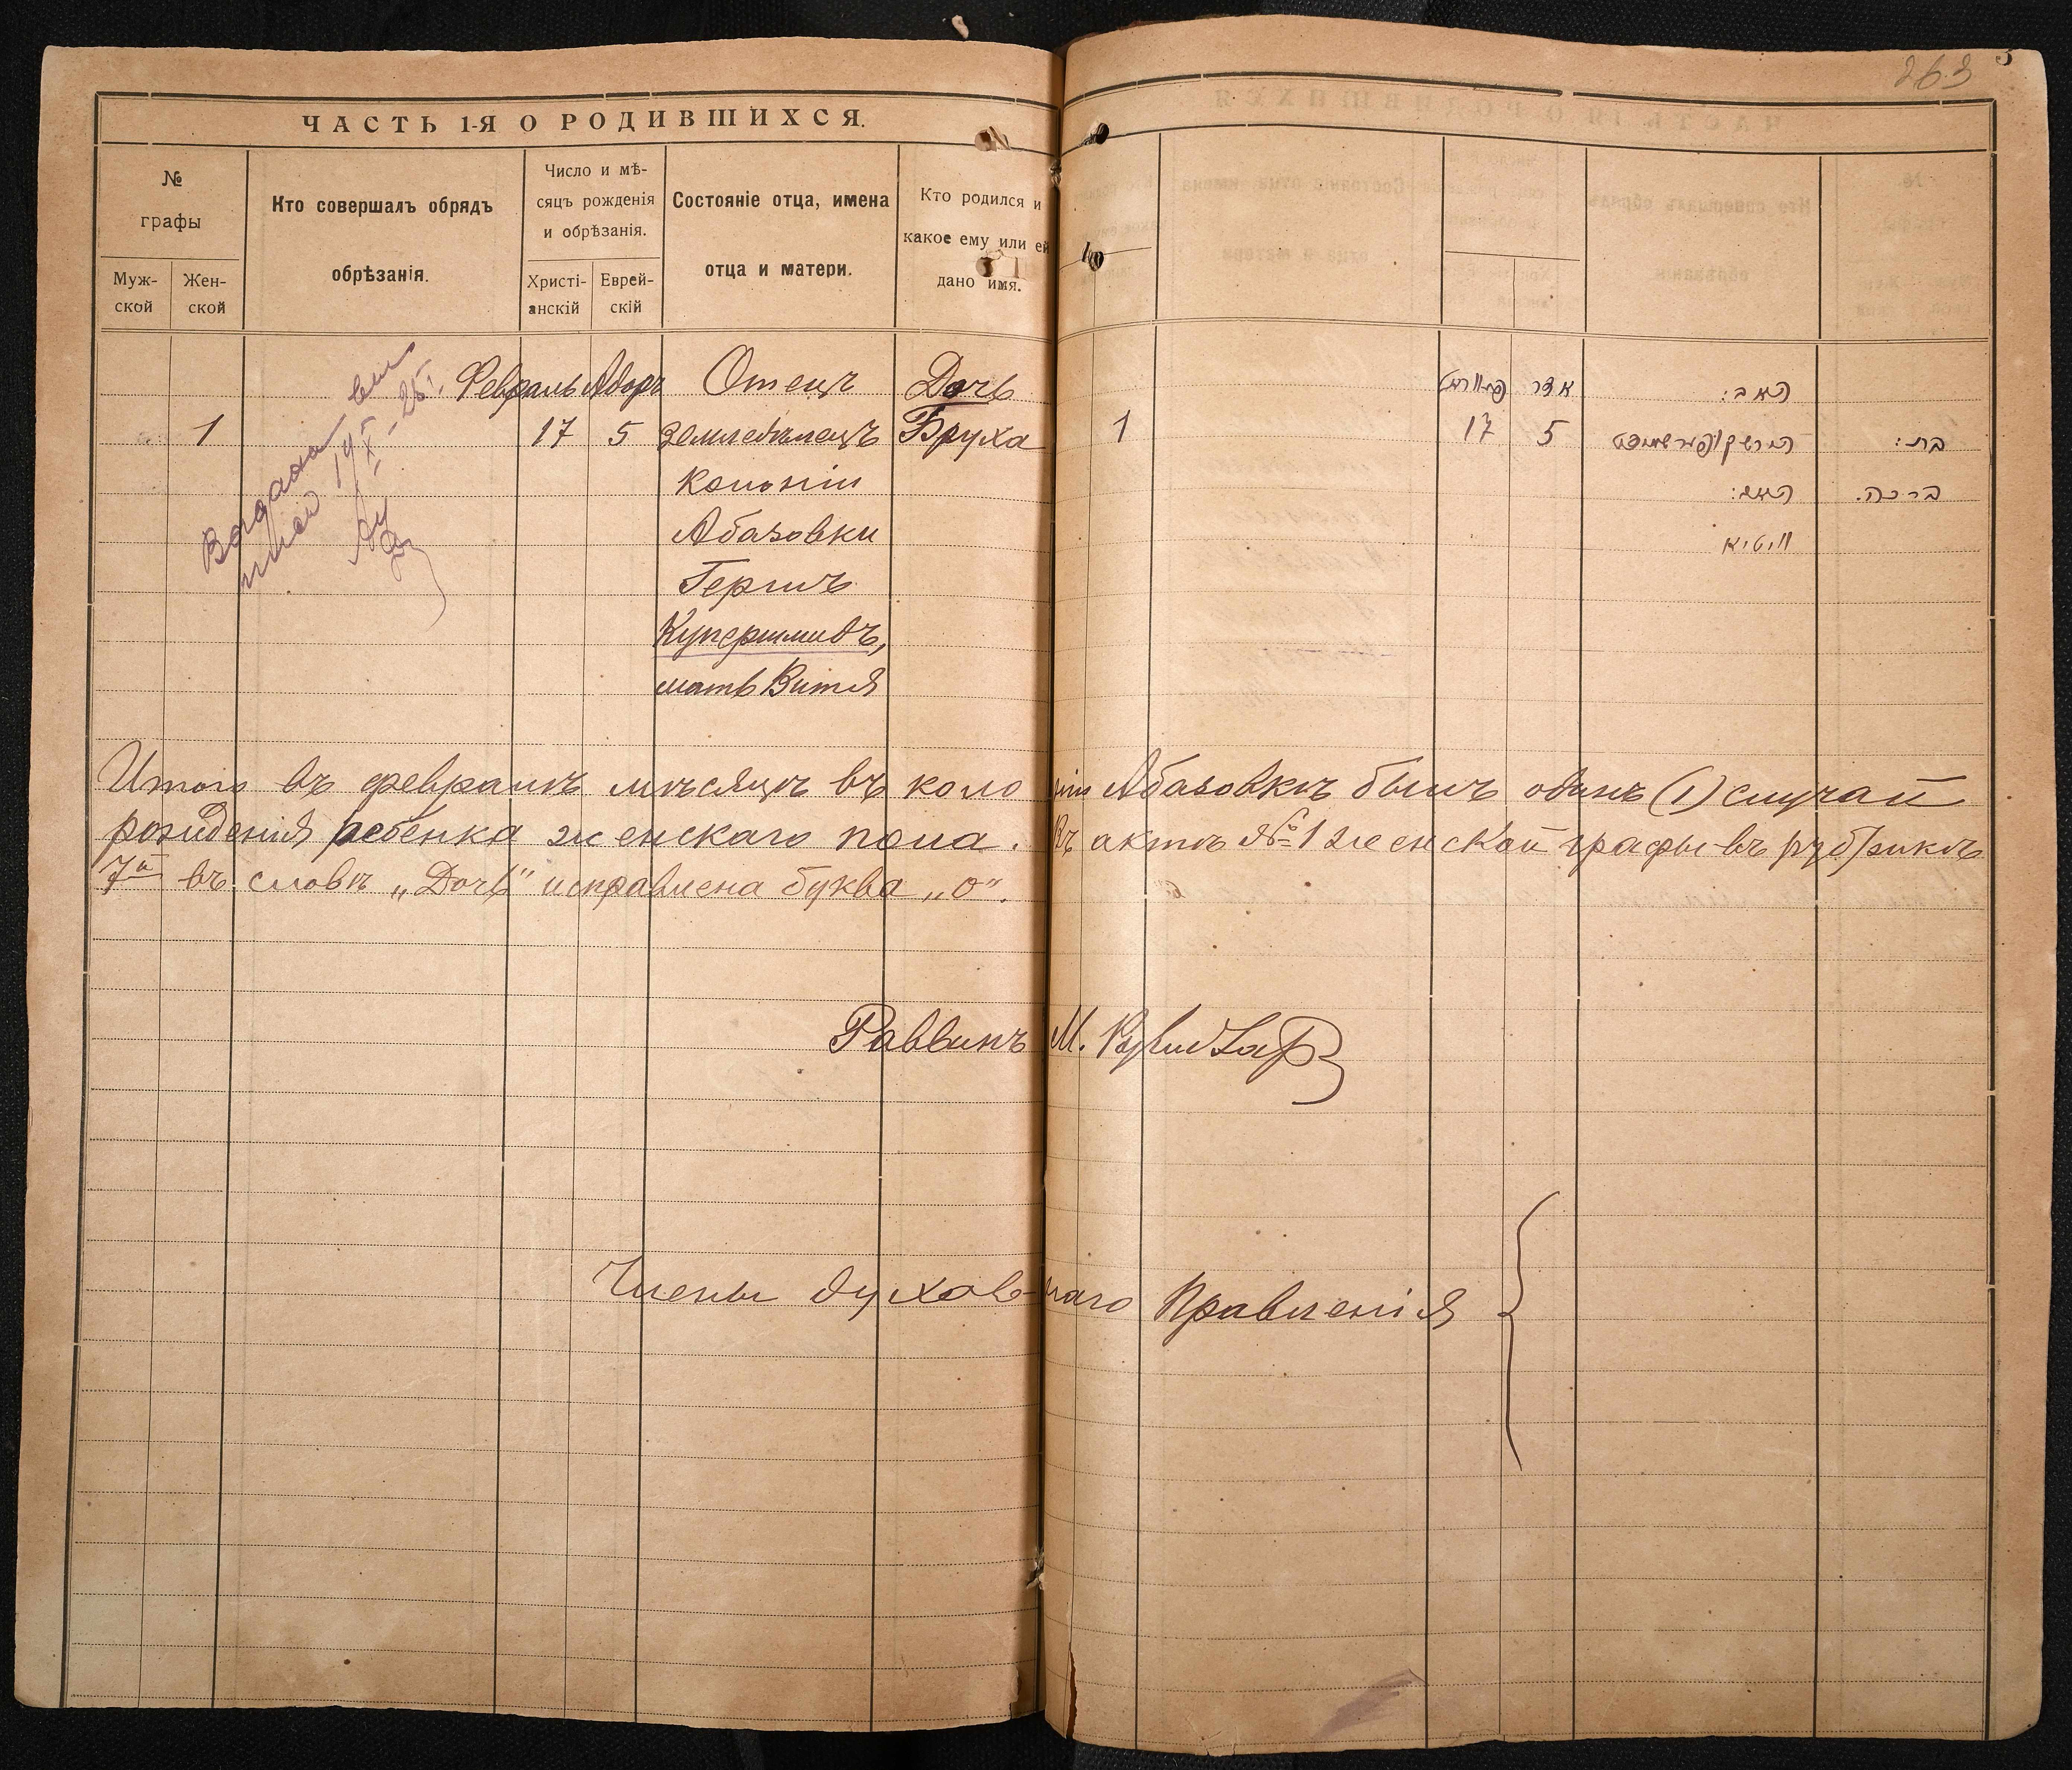 263
ЧАСТЬ 1-Я О РОДИВШИХСЯ.
№
графы
Муж-
ской
Жен-
ской
Кто совершалъ обрядъ
обрѣзанія.
Число и мѣ-
сяцъ рожденія
и обрѣзанія.
Христі-
анскій
Еврей-
скій
Состояніе отца, имена
отца и матери.
Кто родился и
какое ему или ей
дано имя.
Февраль Адаръ Отецъ Дочь
1 17 5 земледѣлецъ Бруха
колоніи
Абазовки
Гершъ
Купершмидъ,
мать Витя
אדר האב:
1 17 5 הירש קופערשמיט בת:
האם: ברכה.
וויטיא
Итого въ февралѣ мѣсяцѣ въ колоніи Абазовкѣ былъ одинъ (1) случай
рожденія ребенка женскаго пола. Въ актѣ № 1 женской графы въ рубрикѣ
7й въ словѣ „Дочь" исправлена буква „о".
Раввинъ М.
Члены духовнаго Правленія